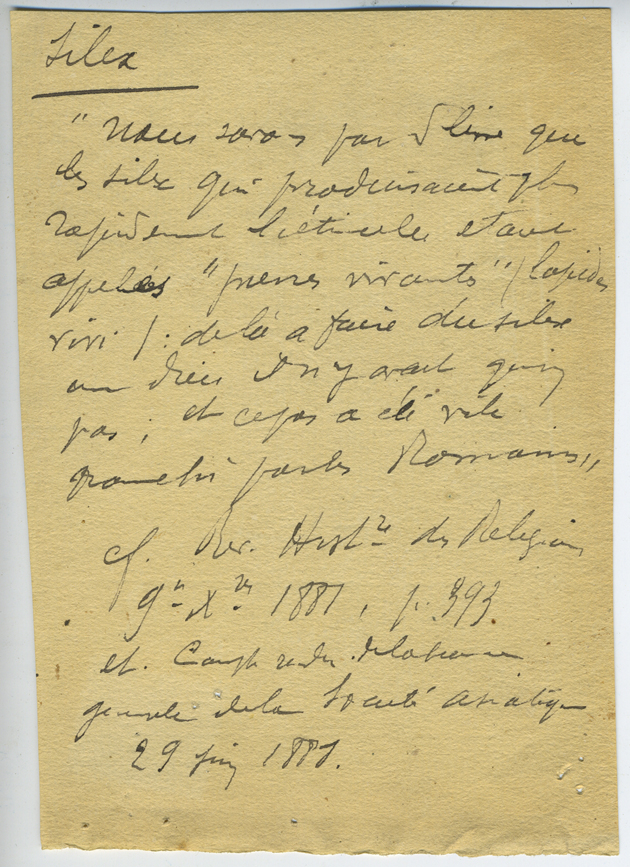 Silex
"Nous savons par Pline que
les silex qui produisaient plus
rapidement l'étincelle etaient
appelés "pierres vivantes" (lapides
vivi) : de là à faire du silex
un dieu il n'y avait qu'un
pas ; et ce pas a été vite
franchi par les Romains"
cf. Rev. Hist.re des Religions
1881, p. 393
et. Compte rendu de la séance
générale de la Société asiatique
29 juin 1881.